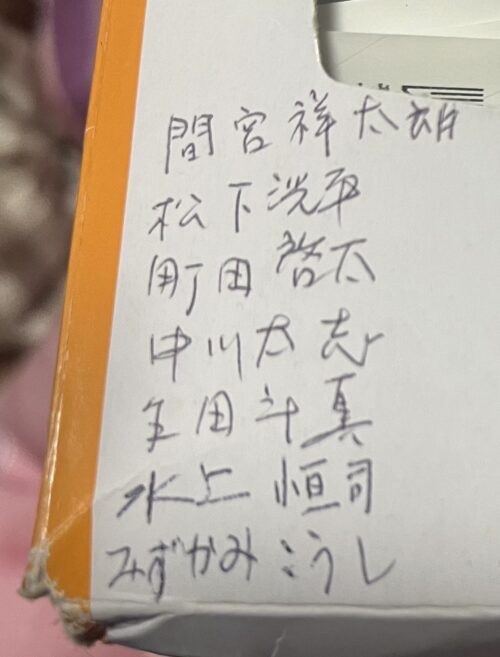 間宮祥太朗
松下洸平
町田啓太
中川大志
生田斗真
水上恒司
みずかみこうし